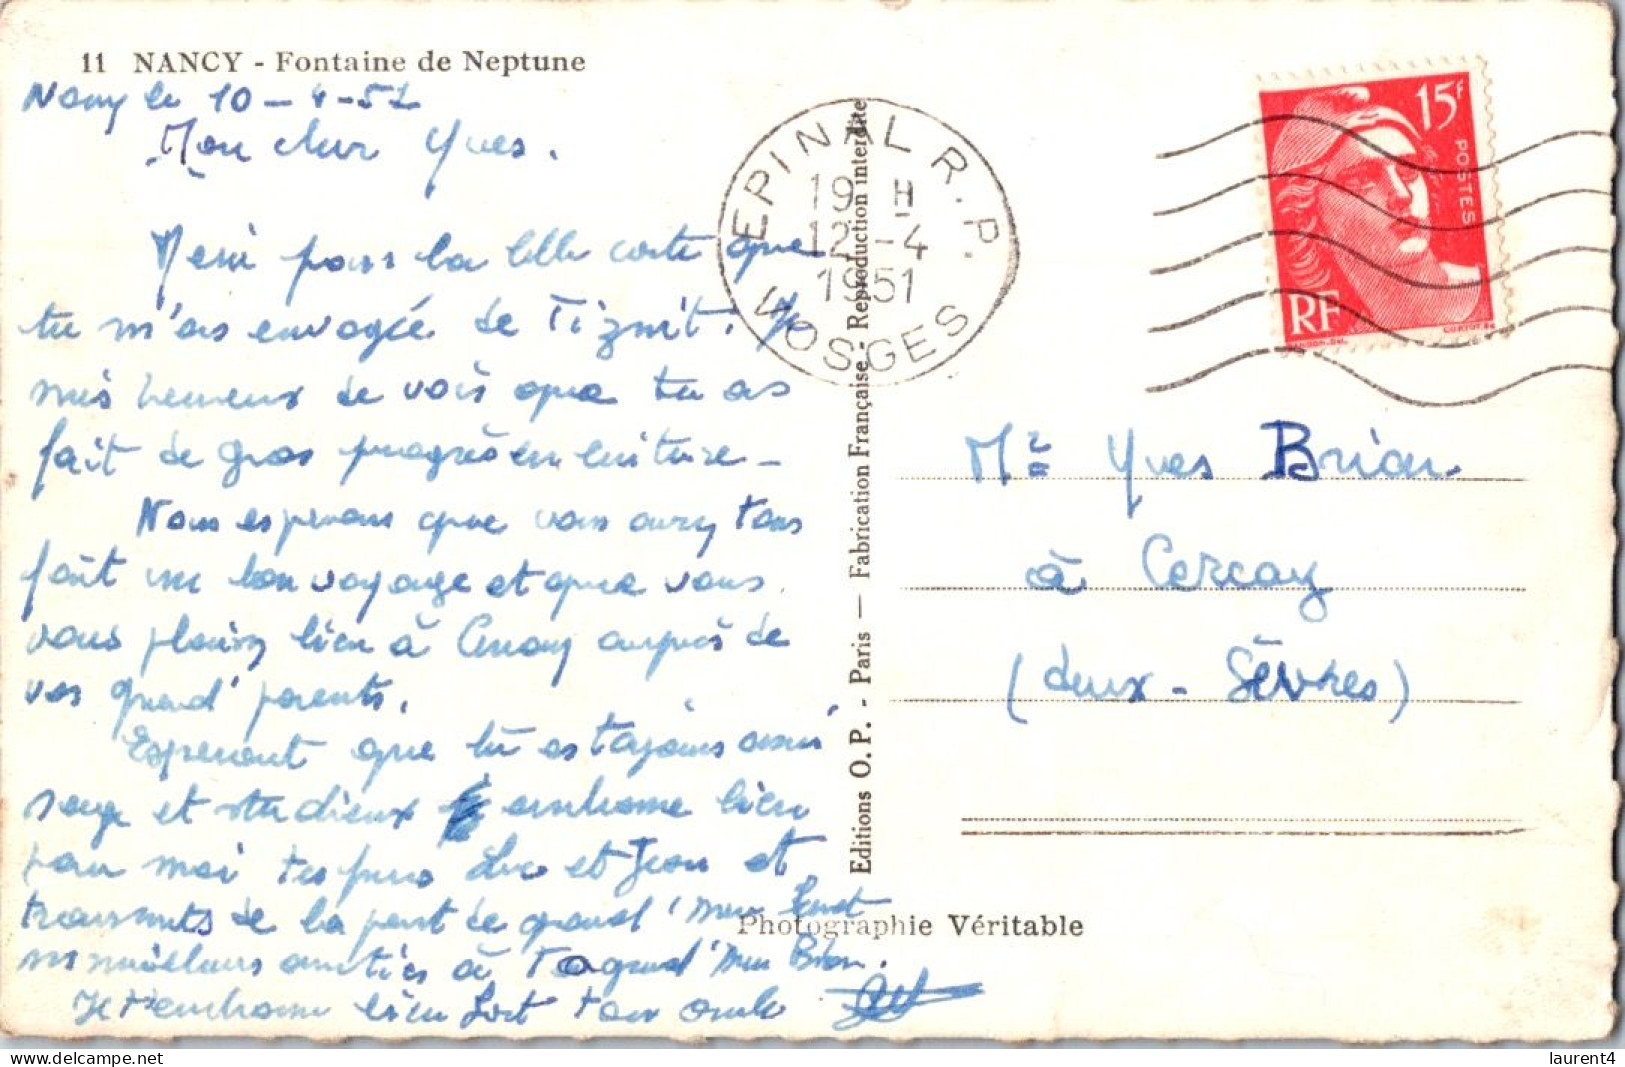 11 NANCY - Fontaine de Neptune
Nancy le 10-4-51
Mon cher Yves.
Merci pour la belle carte que
tu m'as envoyée de Tiznit. Je
suis heureux de voir que tu as
fait de gros progrès en écriture -
Nous esperons que vous avez tous
fait un bon voyage et que vous
vous plaisez bien à Cercay auprès de
vos grand' parents.
Esperant que tu es toujours aussi
sage et studieux embrasse bien
pour moi tes Luc et Jean et
transmets de la part de grand' mère
meilleurs amitiés à Ta grand' mère Brion.
Je t'embrasse bien fort Ton oncle
EPINAL R.P.
19 H
12 - 4
1951
VOSGES
15F
POSTES
RF
GANDON-DEL.
CORTOT.SC
Editions O. P. - Paris — Fabrication Française - Reproduction interdite
Mr Yves Brion
à Cercay
(deux - Sèvres)
Photographie Véritable
laurent4